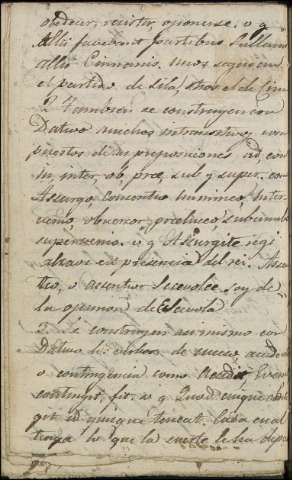 obedecer, resistir, oponerse. v. g.
Allii faverunt partibus Sullani
allii Cinnanis. Unos seguían
el partido de Sila, otros el de Cin
2. Tambien se construyen con
Dativo muchos intransitivos, com
puestos de las preposiciones ad, con
in, inter, ob, præ, sub y super. como
Assurgo, concentro, immineo, Inter
venio, obvenio, præluceo, subcumbo
supervenio. v. g. Assurgite regi
alzaos en presencia del rei. Assen
tio, o assentior Scevolæ, soy de
la opinion de Escevola
3. Se construyen asimismo con
Dativo los verbos de suceso, acaso
o contingencia como Accidit, Evenit
contingit, fit. v. g. Quod cuique obti
git id quisque teneat. Cada cual
tenga lo que la suerte le ha depa